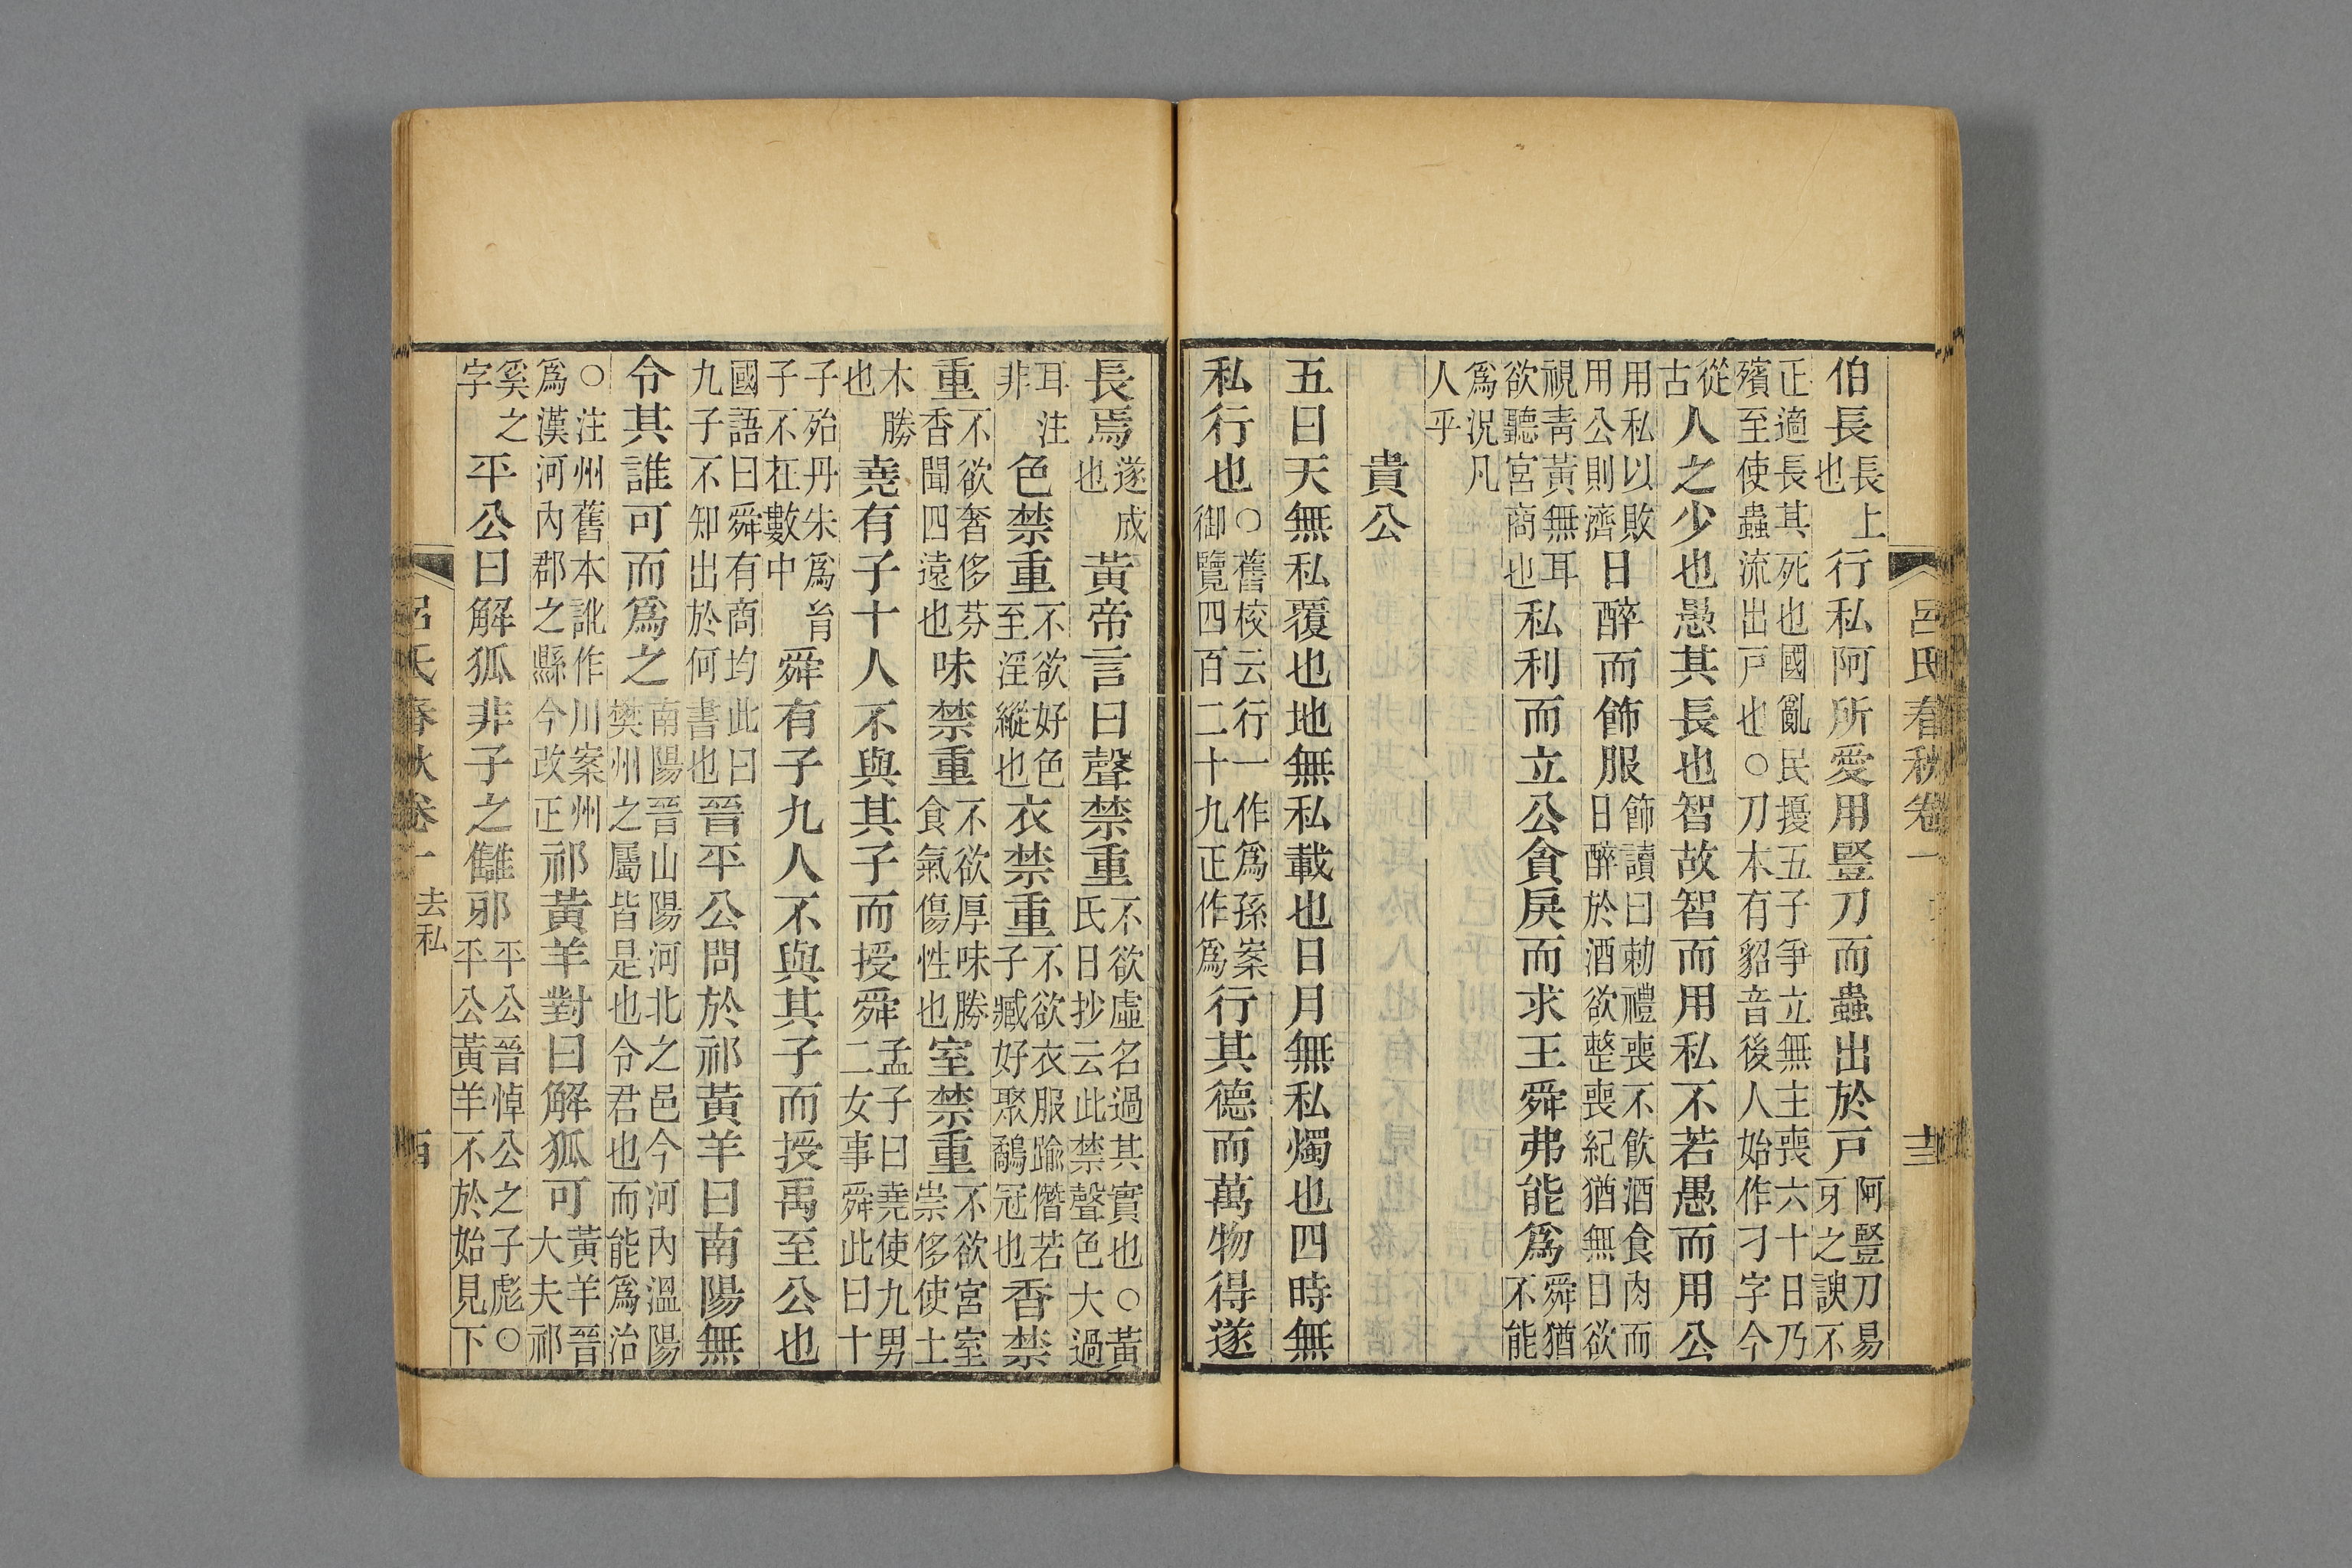 呂氏春秋卷一 十三
伯長長上也行私阿所愛用豎刀而蟲出於戶阿豎刀易牙之諛不
正適長其死也國亂民擾五子爭立無主喪六十日乃殯至使蟲流出戶也○刀本有貂音後人始作刁字今
從古人之少也愚其長也智故智而用私不若愚而用公
用私以敗用公則濟日醉而飾服飾讀曰勅禮喪不飲酒食肉而日醉於酒欲整喪紀猶無日欲
視青黃無耳欲聽宮商也私利而立公貪戾而求王舜弗能爲舜猶不能
爲況凡人乎
貴公
五曰天無私覆也地無私載也日月無私燭也四時無
私行也○舊校云行一作爲孫案御覽四百二十九正作爲行其德而萬物得遂
長焉遂成也黃帝言曰聲禁重不欲虛名過其實也○黃氏日抄云此禁聲色大過
耳注非色禁重不欲好色至淫縱也衣禁重不欲衣服踰僭若子臧好聚鷸冠也香禁
重不欲奢侈芬香聞四遠也味禁重不欲厚味勝食氣傷性也室禁重不欲宮室崇侈使土
木勝也堯有子十人不與其子而授舜孟子曰堯使九男二女事舜此曰十
子殆丹朱爲胄子不在數中舜有子九人不與其子而授禹至公也
國語曰舜有商均此曰九子不知出於何書也晉平公問於祁黃羊曰南陽無
令其誰可而爲之南陽晉山陽河北之邑今河內溫陽樊州之屬皆是也令君也而能爲治
○注州舊本訛作川案州爲漢河內郡之縣今改正祁黃羊對曰解狐可黃羊晉大夫祁
奚之字平公曰解狐非子之讎邪平公晉悼公之子彪○平公黃羊不於始見下
呂氏春秋卷一 去私